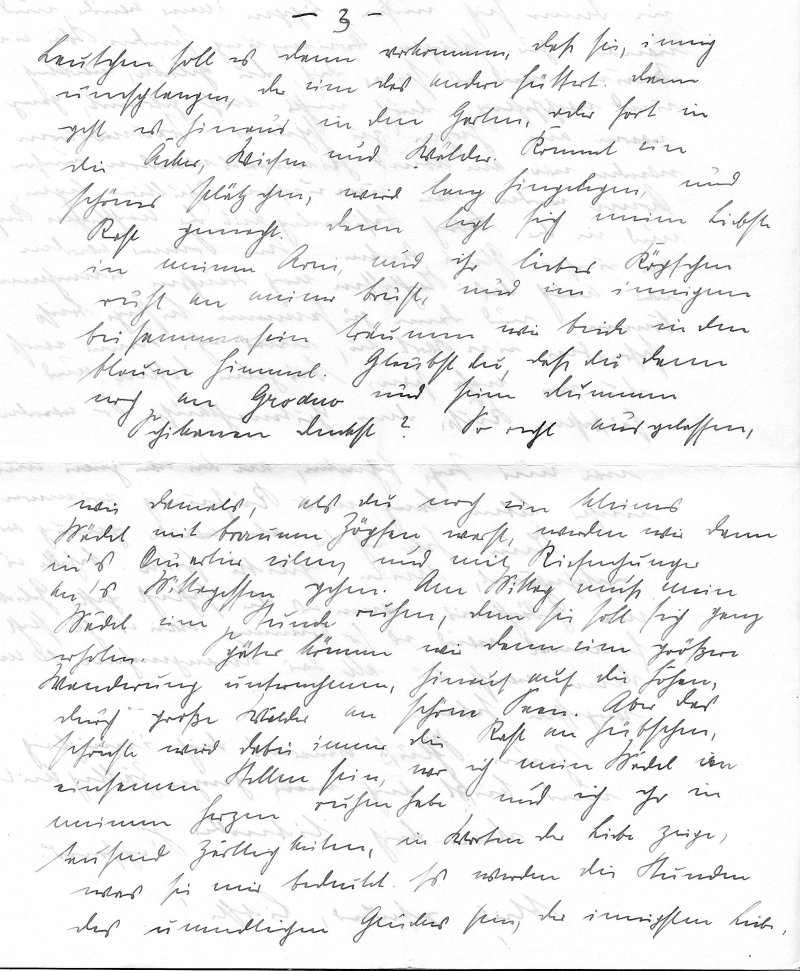 - 3 -
Leutchen soll es dann vorkommen, daß sie, innig
umschlungen, der eine das andere füttert. Dann
geht es hinaus in den Garten, oder fort in
die Äcker, Wiesen und Wälder. Kommt ein
schönes Plätzchen, wird lang hingelegen, und
Rast gemacht. Dann legt sich meine Liebste
in meinen Arm, und ihr liebes Köpfchen
ruht an meiner Brust, und im innigen
beisammensein träumen wir beide in den
blauen Himmel. Glaubst du, daß du dann
noch an Grodno und seine dummen
Schikanen denkst? So recht ausgelassen,
wie damals, als du noch ein kleines
Mädel mit braunen Zöpfen warst, werden wir dann
in's Quartier eilen, und mit Riesenhunger
an's Mittagessen gehen. Am Mittag muß mein
Mädel eine Stunde ruhen, denn sie soll sich ganz
erholen. Später können wir dann eine größere
Wanderung unternehmen, hinauf auf die Höhen,
durch große Wälder an schöne Seen. Aber das
schönste wird dabei immer die Rast an hübschen,
einsamen Stellen sein, wo ich mein Mädel an
meinem Herzen ruhen habe und ich ihr in
tausend Zärtlichkeiten, in Worten der Liebe zeige,
was sie mir bedeutet. Es werden die Stunden
des unendlichen Glückes sein, der innigsten Liebe,